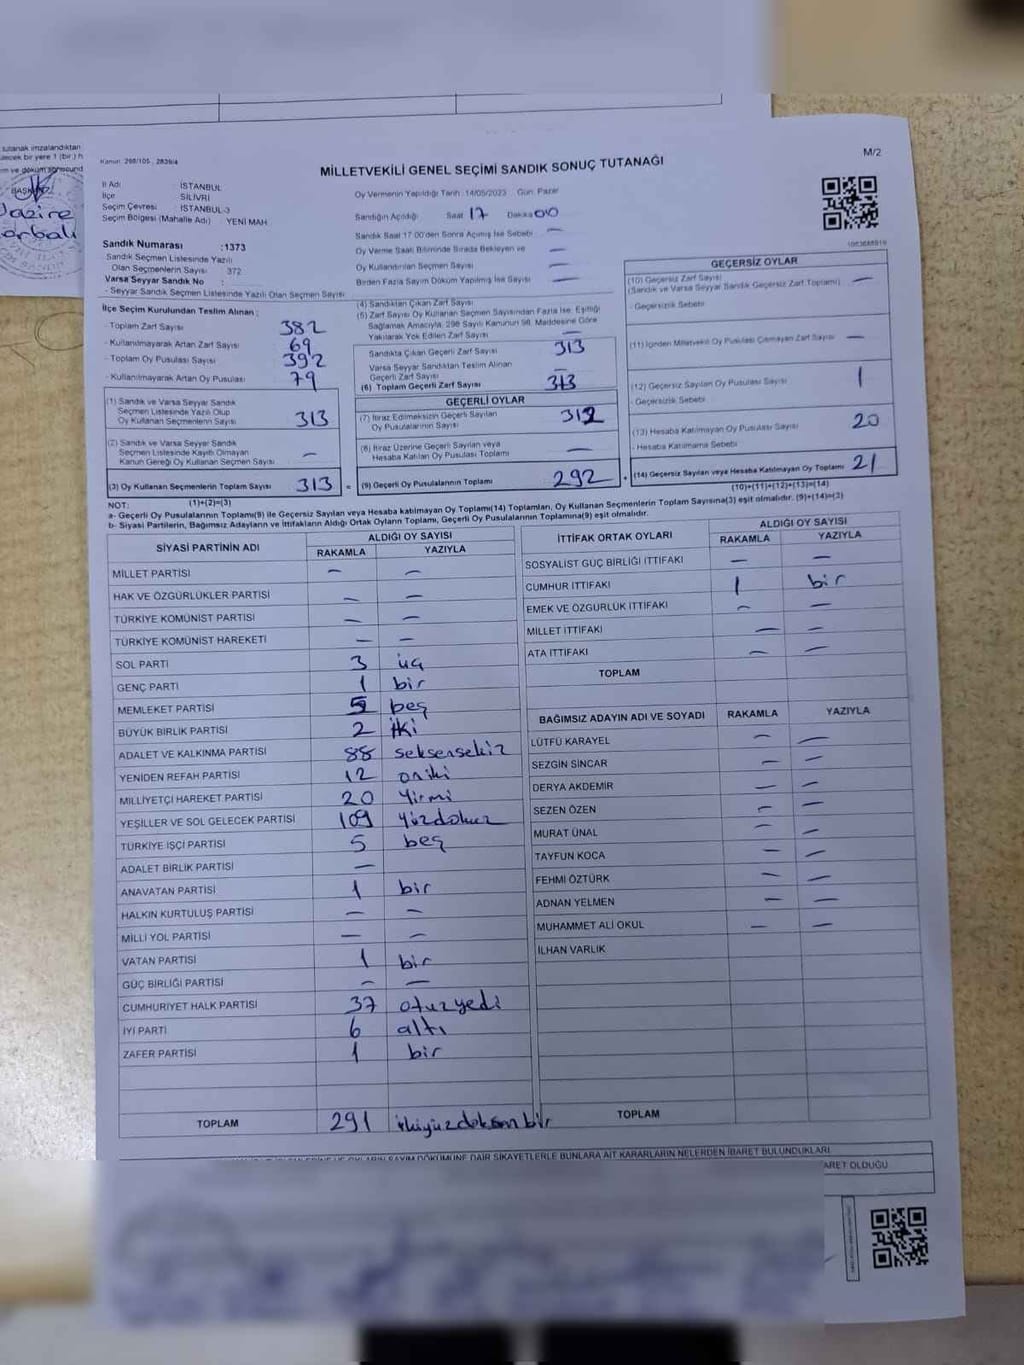 Kanun: 298/105 , 2839/4
MİLLETVEKİLİ GENEL SEÇİMİ SANDIK SONUÇ TUTANAĞI
M/2
tutanak imzalandıktan
ilecek bir yere 1 (bir)
İl Adı : İSTANBUL
İlçe : SİLİVRİ
Seçim Çevresi : İSTANBUL-3
Seçim Bölgesi (Mahalle Adı) : YENİ MAH
Sandık Numarası :1373
Sandık Seçmen Listesinde Yazılı
Olan Seçmenlerin Sayısı : 372
Varsa Seyyar Sandık No :
- Seyyar Sandık Seçmen Listesinde Yazılı Olan Seçmen Sayısı:
Oy Vermenin Yapıldığı Tarih: 14/05/2023 Gün: Pazar
Sandığın Açıldığı Saat 17 Dakika 00
Sandık Saat 17:00'den Sonra Açılmış İse Sebebi —
Oy Verme Saati Bitiminde Sırada Bekleyen ve
Oy Kullandırılan Seçmen Sayısı —
Birden Fazla Sayım Döküm Yapılmış İse Sayısı —
İlçe Seçim Kurulundan Teslim Alınan ;
- Toplam Zarf Sayısı 382
- Kullanılmayarak Artan Zarf Sayısı 69
- Toplam Oy Pusulası Sayısı 392
- Kullanılmayarak Artan Oy Pusulası 79
(1) Sandık ve Varsa Seyyar Sandık
Seçmen Listesinde Yazılı Olup
Oy Kullanan Seçmenlerin Sayısı 313
(2) Sandık ve Varsa Seyyar Sandık
Seçmen Listesinde Kayıtlı Olmayan
Kanun Gereği Oy Kullanan Seçmen Sayısı —
(3) Oy Kullanan Seçmenlerin Toplam Sayısı 313 =
(1)+(2)=(3)
(4) Sandıktan Çıkan Zarf Sayısı
(5) Zarf Sayısı Oy Kullanan Seçmen Sayısından Fazla İse, Eşitliği
Sağlamak Amacıyla, 298 Sayılı Kanunun 98. Maddesine Göre
Yakılarak Yok Edilen Zarf Sayısı —
Sandıkta Çıkan Geçerli Zarf Sayısı 313
Varsa Seyyar Sandıktan Teslim Alınan
Geçerli Zarf Sayısı —
(6) Toplam Geçerli Zarf Sayısı 313
GEÇERLİ OYLAR
(7) İtiraz Edilmeksizin Geçerli Sayılan
Oy Pusulalarının Sayısı 312
(8) İtiraz Üzerine Geçerli Sayılan veya
Hesaba Katılan Oy Pusulası Toplamı —
(9) Geçerli Oy Pusulalarının Toplamı 292 +
GEÇERSİZ OYLAR
(10) Geçersiz Zarf Sayısı
(Sandık ve Varsa Seyyar Sandık Geçersiz Zarf Toplamı) —
- Geçersizlik Sebebi
(11) İçinden Milletvekili Oy Pusulası Çıkmayan Zarf Sayısı —
(12) Geçersiz Sayılan Oy Pusulası Sayısı 1
- Geçersizlik Sebebi
(13) Hesaba Katılmayan Oy Pusulası Sayısı 20
- Hesaba Katılmama Sebebi
(14) Geçersiz Sayılan veya Hesaba Katılmayan Oy Toplamı 21
(10)+(11)+(12)+(13)=(14)
NOT:
a- Geçerli Oy Pusulalarının Toplamı(9) ile Geçersiz Sayılan veya Hesaba katılmayan Oy Toplamı(14) Toplamları, Oy Kullanan Seçmenlerin Toplam Sayısına(3) eşit olmalıdır. (9)+(14)=(3)
b- Siyasi Partilerin, Bağımsız Adayların ve İttifakların Aldığı Ortak Oyların Toplamı, Geçerli Oy Pusulalarının Toplamına(9) eşit olmalıdır.
SİYASİ PARTİNİN ADI ALDIĞI OY SAYISI
RAKAMLA YAZIYLA
MİLLET PARTİSİ — —
HAK VE ÖZGÜRLÜKLER PARTİSİ — —
TÜRKİYE KOMÜNİST PARTİSİ — —
TÜRKİYE KOMÜNİST HAREKETİ — —
SOL PARTİ 3 üç
GENÇ PARTİ 1 bir
MEMLEKET PARTİSİ 5 beş
BÜYÜK BİRLİK PARTİSİ 2 iki
ADALET VE KALKINMA PARTİSİ 88 seksensekiz
YENİDEN REFAH PARTİSİ 12 oniki
MİLLİYETÇİ HAREKET PARTİSİ 20 Yirmi
YEŞİLLER VE SOL GELECEK PARTİSİ 109 Yüzdokuz
TÜRKİYE İŞÇİ PARTİSİ 5 beş
ADALET BİRLİK PARTİSİ —
ANAVATAN PARTİSİ 1 bir
HALKIN KURTULUŞ PARTİSİ — —
MİLLİ YOL PARTİSİ — —
VATAN PARTİSİ 1 bir
GÜÇ BİRLİĞİ PARTİSİ — —
CUMHURİYET HALK PARTİSİ 37 otuzyedi
İYİ PARTİ 6 altı
ZAFER PARTİSİ 1 bir
TOPLAM 291 ikiyüzdoksanbir
İTTİFAK ORTAK OYLARI ALDIĞI OY SAYISI
RAKAMLA YAZIYLA
SOSYALİST GÜÇ BİRLİĞİ İTTİFAKI — —
CUMHUR İTTİFAKI 1 bir
EMEK VE ÖZGÜRLÜK İTTİFAKI — —
MİLLET İTTİFAKI — —
ATA İTTİFAKI — —
TOPLAM
BAĞIMSIZ ADAYIN ADI VE SOYADI RAKAMLA YAZIYLA
LÜTFÜ KARAYEL — —
SEZGİN SİNCAR — —
DERYA AKDEMİR — —
SEZEN ÖZEN — —
MURAT ÜNAL — —
TAYFUN KOCA — —
FEHMİ ÖZTÜRK — —
ADNAN YELMEN — —
MUHAMMET ALİ OKUL — —
İLHAN VARLIK
TOPLAM
SAYIM DÖKÜMÜNE DAİR ŞİKAYETLERLE BUNLARA AİT KARARLARIN NELERDEN İBARET BULUNDUKLARI